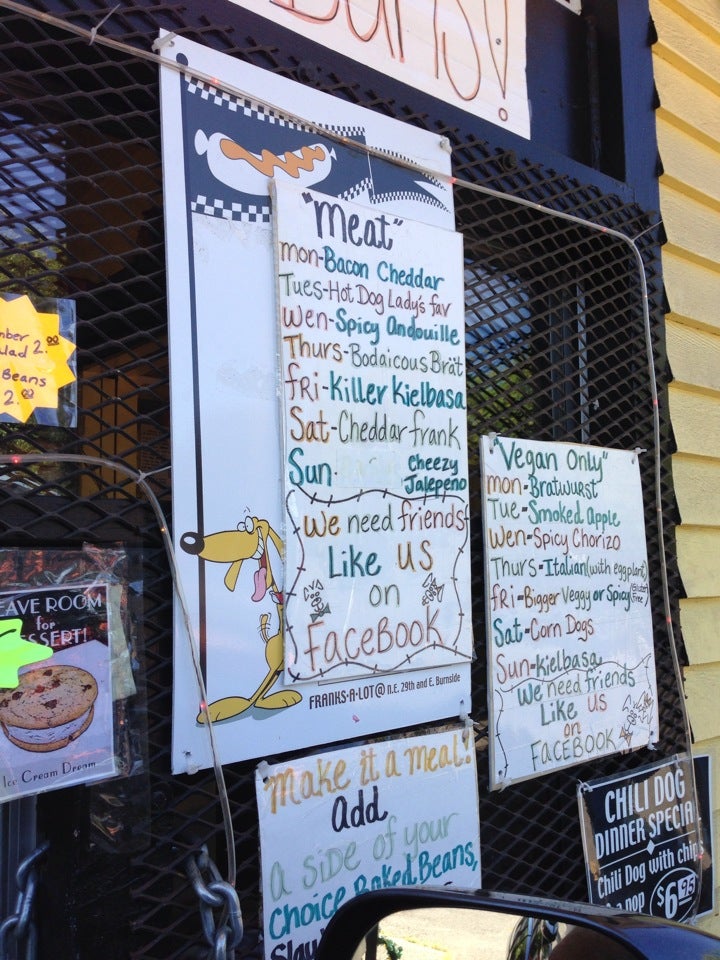 Buns!
"Meat"
mon-Bacon Cheddar
Tues-Hot Dog Lady's fav
Wen-Spicy Andouille
Thurs-Bodaicous Brät
fRi-Killer Kielbasa
Sat-Cheddar frank
Sun Cheezy
Jalepeno
We need friends
Like US
on
FaceBOOK
FRANKS-A-LOT @ N.E. 29th and E. Burnside
"Vegan Only"
mon-Bratwurst
Tue-Smoked Apple
Wen-Spicy Chorizo
Thurs-Italian (with eggplant)
fRi-Bigger Veggy or Spicy (Gluten Free)
Sat-Corn Dogs
Sun-Kielbasa
We need friends
Like US
on
FACEBOOK
2.00
Beans
2.00
ROOM
for
Ice Cream Dream
make it a meal!
Add
a side of your
Choice Baked Beans,
Slaw
CHILI DOG
DINNER SPECIAL
Chili Dog with chips
a pop $6.95